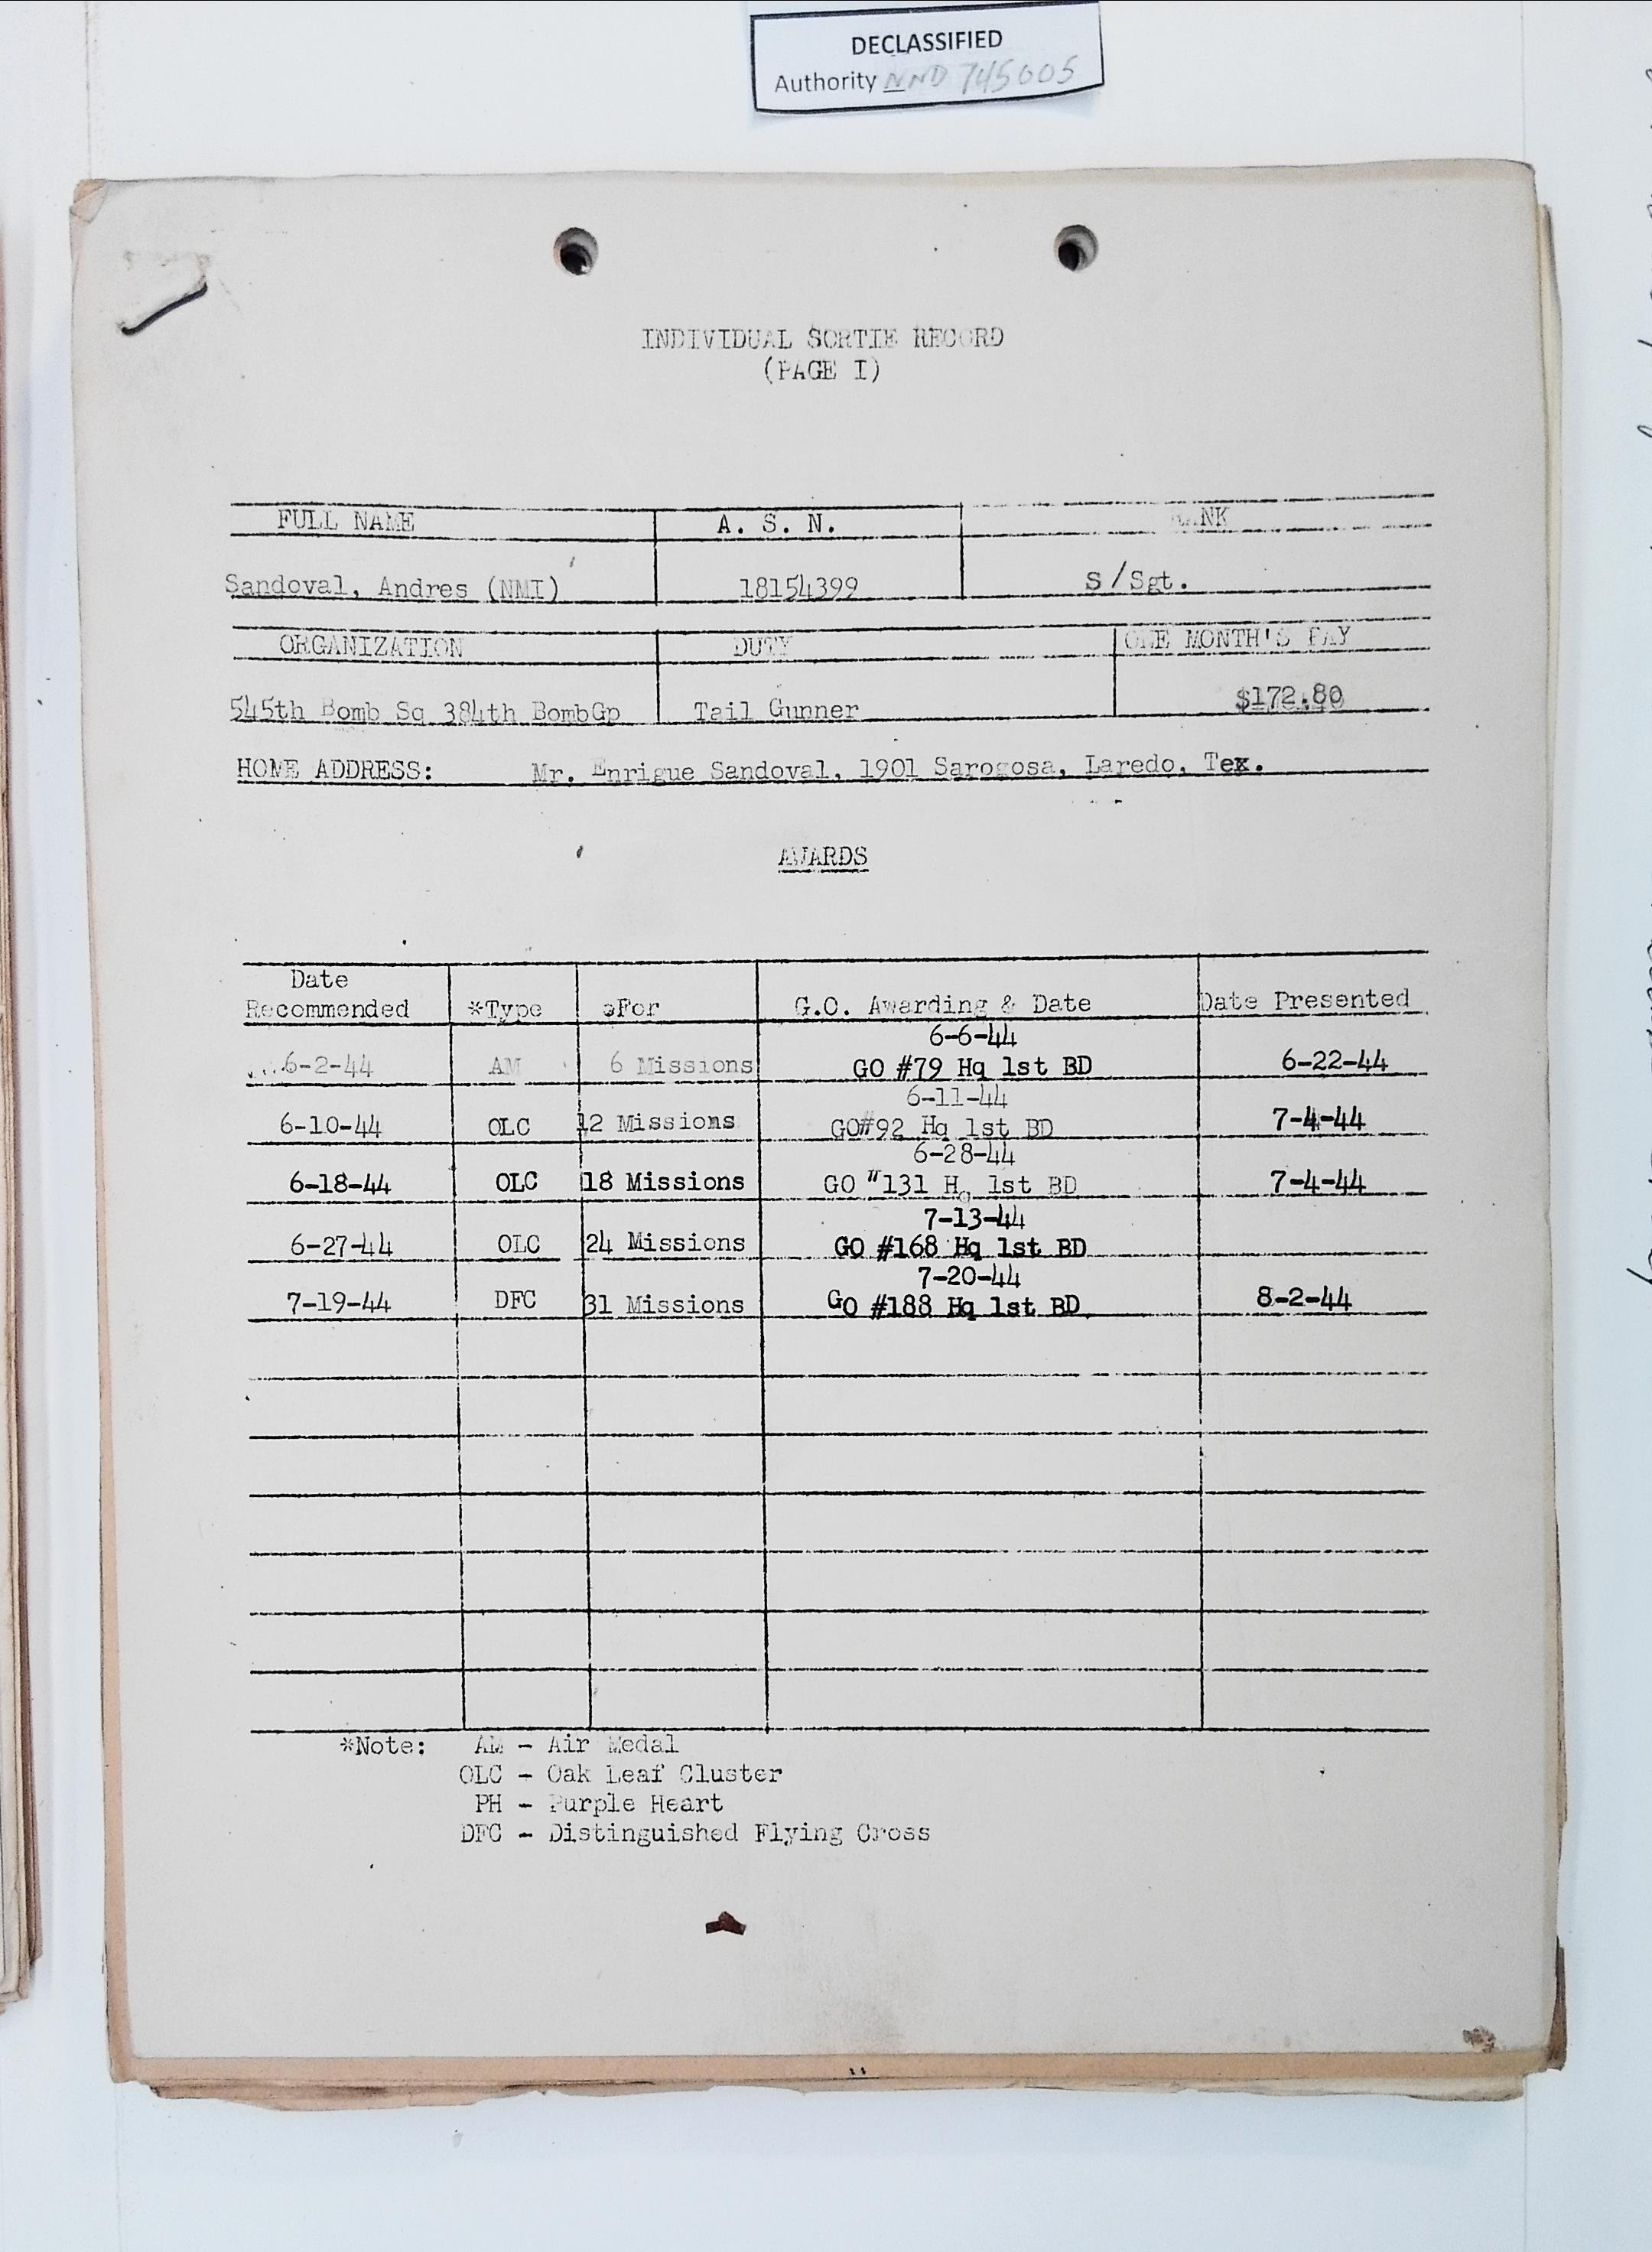 DECLASSIFIED
Authority NND 745005
INDIVIDUAL SORTIE RECORD
(PAGE I)
FULL NAME A. S. N. RANK
Sandoval, Andres (NMI) 18154399 S/Sgt.
ORGANIZATION DUTY ONE MONTH'S PAY
545th Bomb Sq 384th BombGp Tail Gunner $172.80
HOME ADDRESS: Mr. Enrigue Sandoval, 1901 Sarogosa, Laredo, Tex.
AWARDS
Date
Recommended *Type For G.O. Awarding & Date Date Presented
6-6-44
6-2-44 AM 6 Missions GO #79 Hq 1st BD 6-22-44
6-11-44
6-10-44 OLC 12 Missions GO#92 Hq 1st BD 7-4-44
6-28-44
6-18-44 OLC 18 Missions GO "131 Hq 1st BD 7-4-44
7-13-44
6-27-44 OLC 24 Missions GO #168 Hq 1st BD
7-20-44
7-19-44 DFC 31 Missions GO #188 Hq 1st BD 8-2-44
*Note: AM - Air Medal
OLC - Oak Leaf Cluster
PH - Purple Heart
DFC - Distinguished Flying Cross